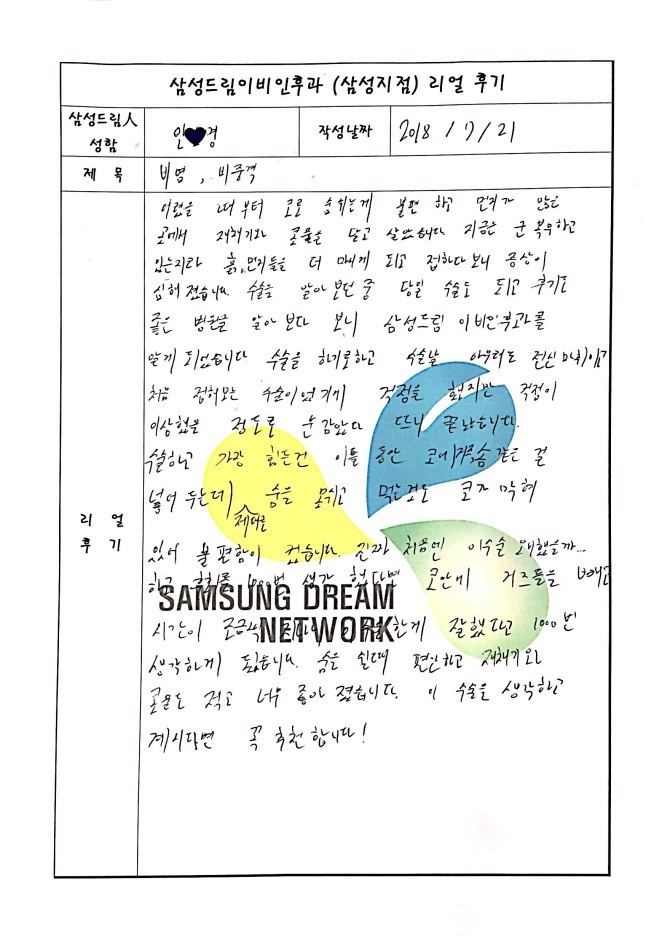 삼성드림이비인후과 (삼성지점) 리얼 후기
삼성드림人 성함
인♥경
작성날짜
2018 / 7 / 21
제 목
비염, 비중격
리 얼 후 기
어렸을 때 부터 코로 숨쉬는게 불편 하고 먼지가 많은
곳에서 재채기와 콧물을 달고 살았습니다 지금은 군 복무하고
있는지라 흙,먼지들을 더 마시게 되고 접하다 보니 증상이
심해 졌습니다. 수술을 알아 보던 중 당일 수술도 되고 후기도
좋은 병원을 알아 보다 보니 삼성드림 이비인후과를
알게 되었습니다 수술을 하기로하고 수술날 아무래도 전신마취이고
처음 접해보는 수술이었기에 걱정을 했지만 걱정이
이상했을 정도로 눈 감았다 뜨니 끝났습니다.
수술하고 가장 힘든건 이틀 동안 코에 솜 같은 걸
넣어 두는데 숨을 제대로 못쉬고 먹는것도 코가 막혀
있어 불편함이 컸습니다. 진짜 처음엔 이수술 왜했을까...
하고 후회를 1000번 생각 했다면 코안에 거즈들을 빼고
시간이 조금씩 한게 잘했다고 1000번
생각하게 됐습니다. 숨을 쉴때 편안하고 재채기와
콧물도 적고 너무 좋아 졌습니다. 이 수술을 생각하고
계시다면 꼭 추천 합니다!
SAMSUNG DREAM
NETWORK